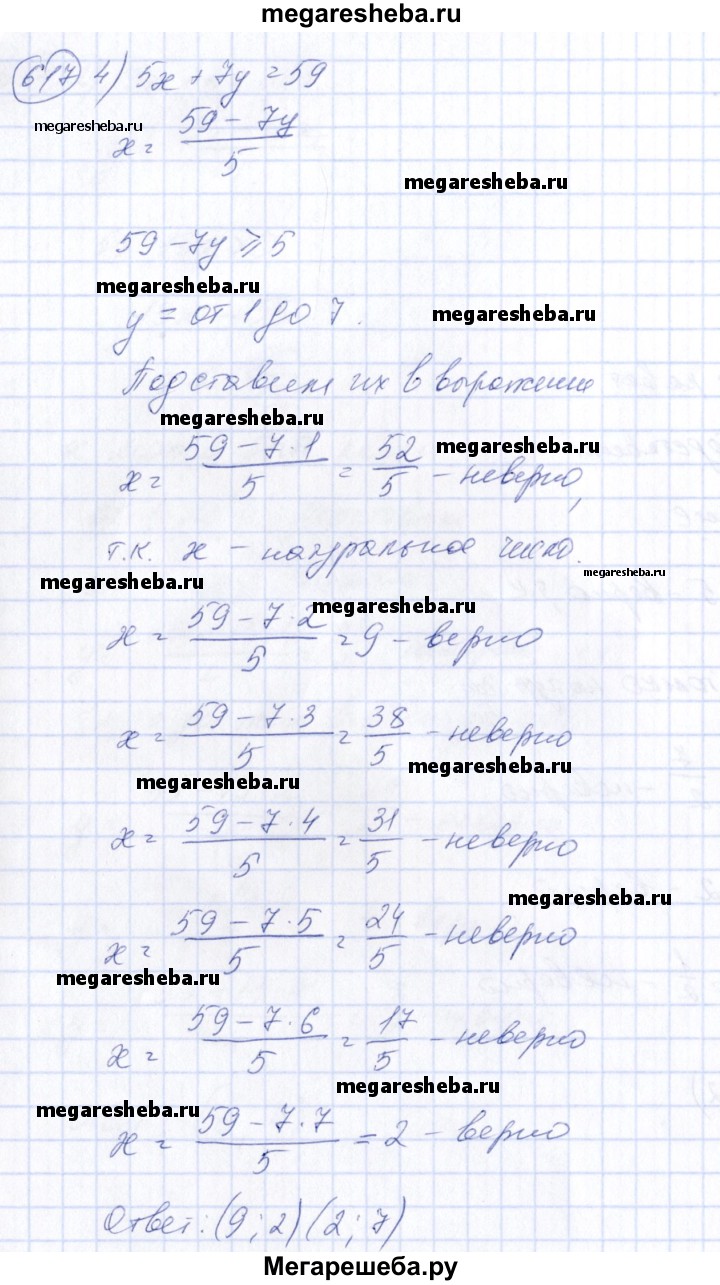 megaresheba.ru
617 4) 5x + 7y = 59
megaresheba.ru
x = (59 - 7y)/5
megaresheba.ru
59 - 7y ⩾ 5
megaresheba.ru
y = от 1 до 7.
megaresheba.ru
Подставим их в выражение
megaresheba.ru
x = (59 - 7·1)/5 = 52/5 - неверно,
megaresheba.ru
т.к. x - натуральное число.
megaresheba.ru
megaresheba.ru
megaresheba.ru
x = (59 - 7·2)/5 = 9 - верно
x = (59 - 7·3)/5 = 38/5 - неверно
megaresheba.ru
megaresheba.ru
x = (59 - 7·4)/5 = 31/5 - неверно
megaresheba.ru
x = (59 - 7·5)/5 = 24/5 - неверно
megaresheba.ru
x = (59 - 7·6)/5 = 17/5 - неверно
megaresheba.ru
megaresheba.ru
x = (59 - 7·7)/5 = 2 - верно
Ответ: (9; 2) (2; 7)
Мегарешеба.ру